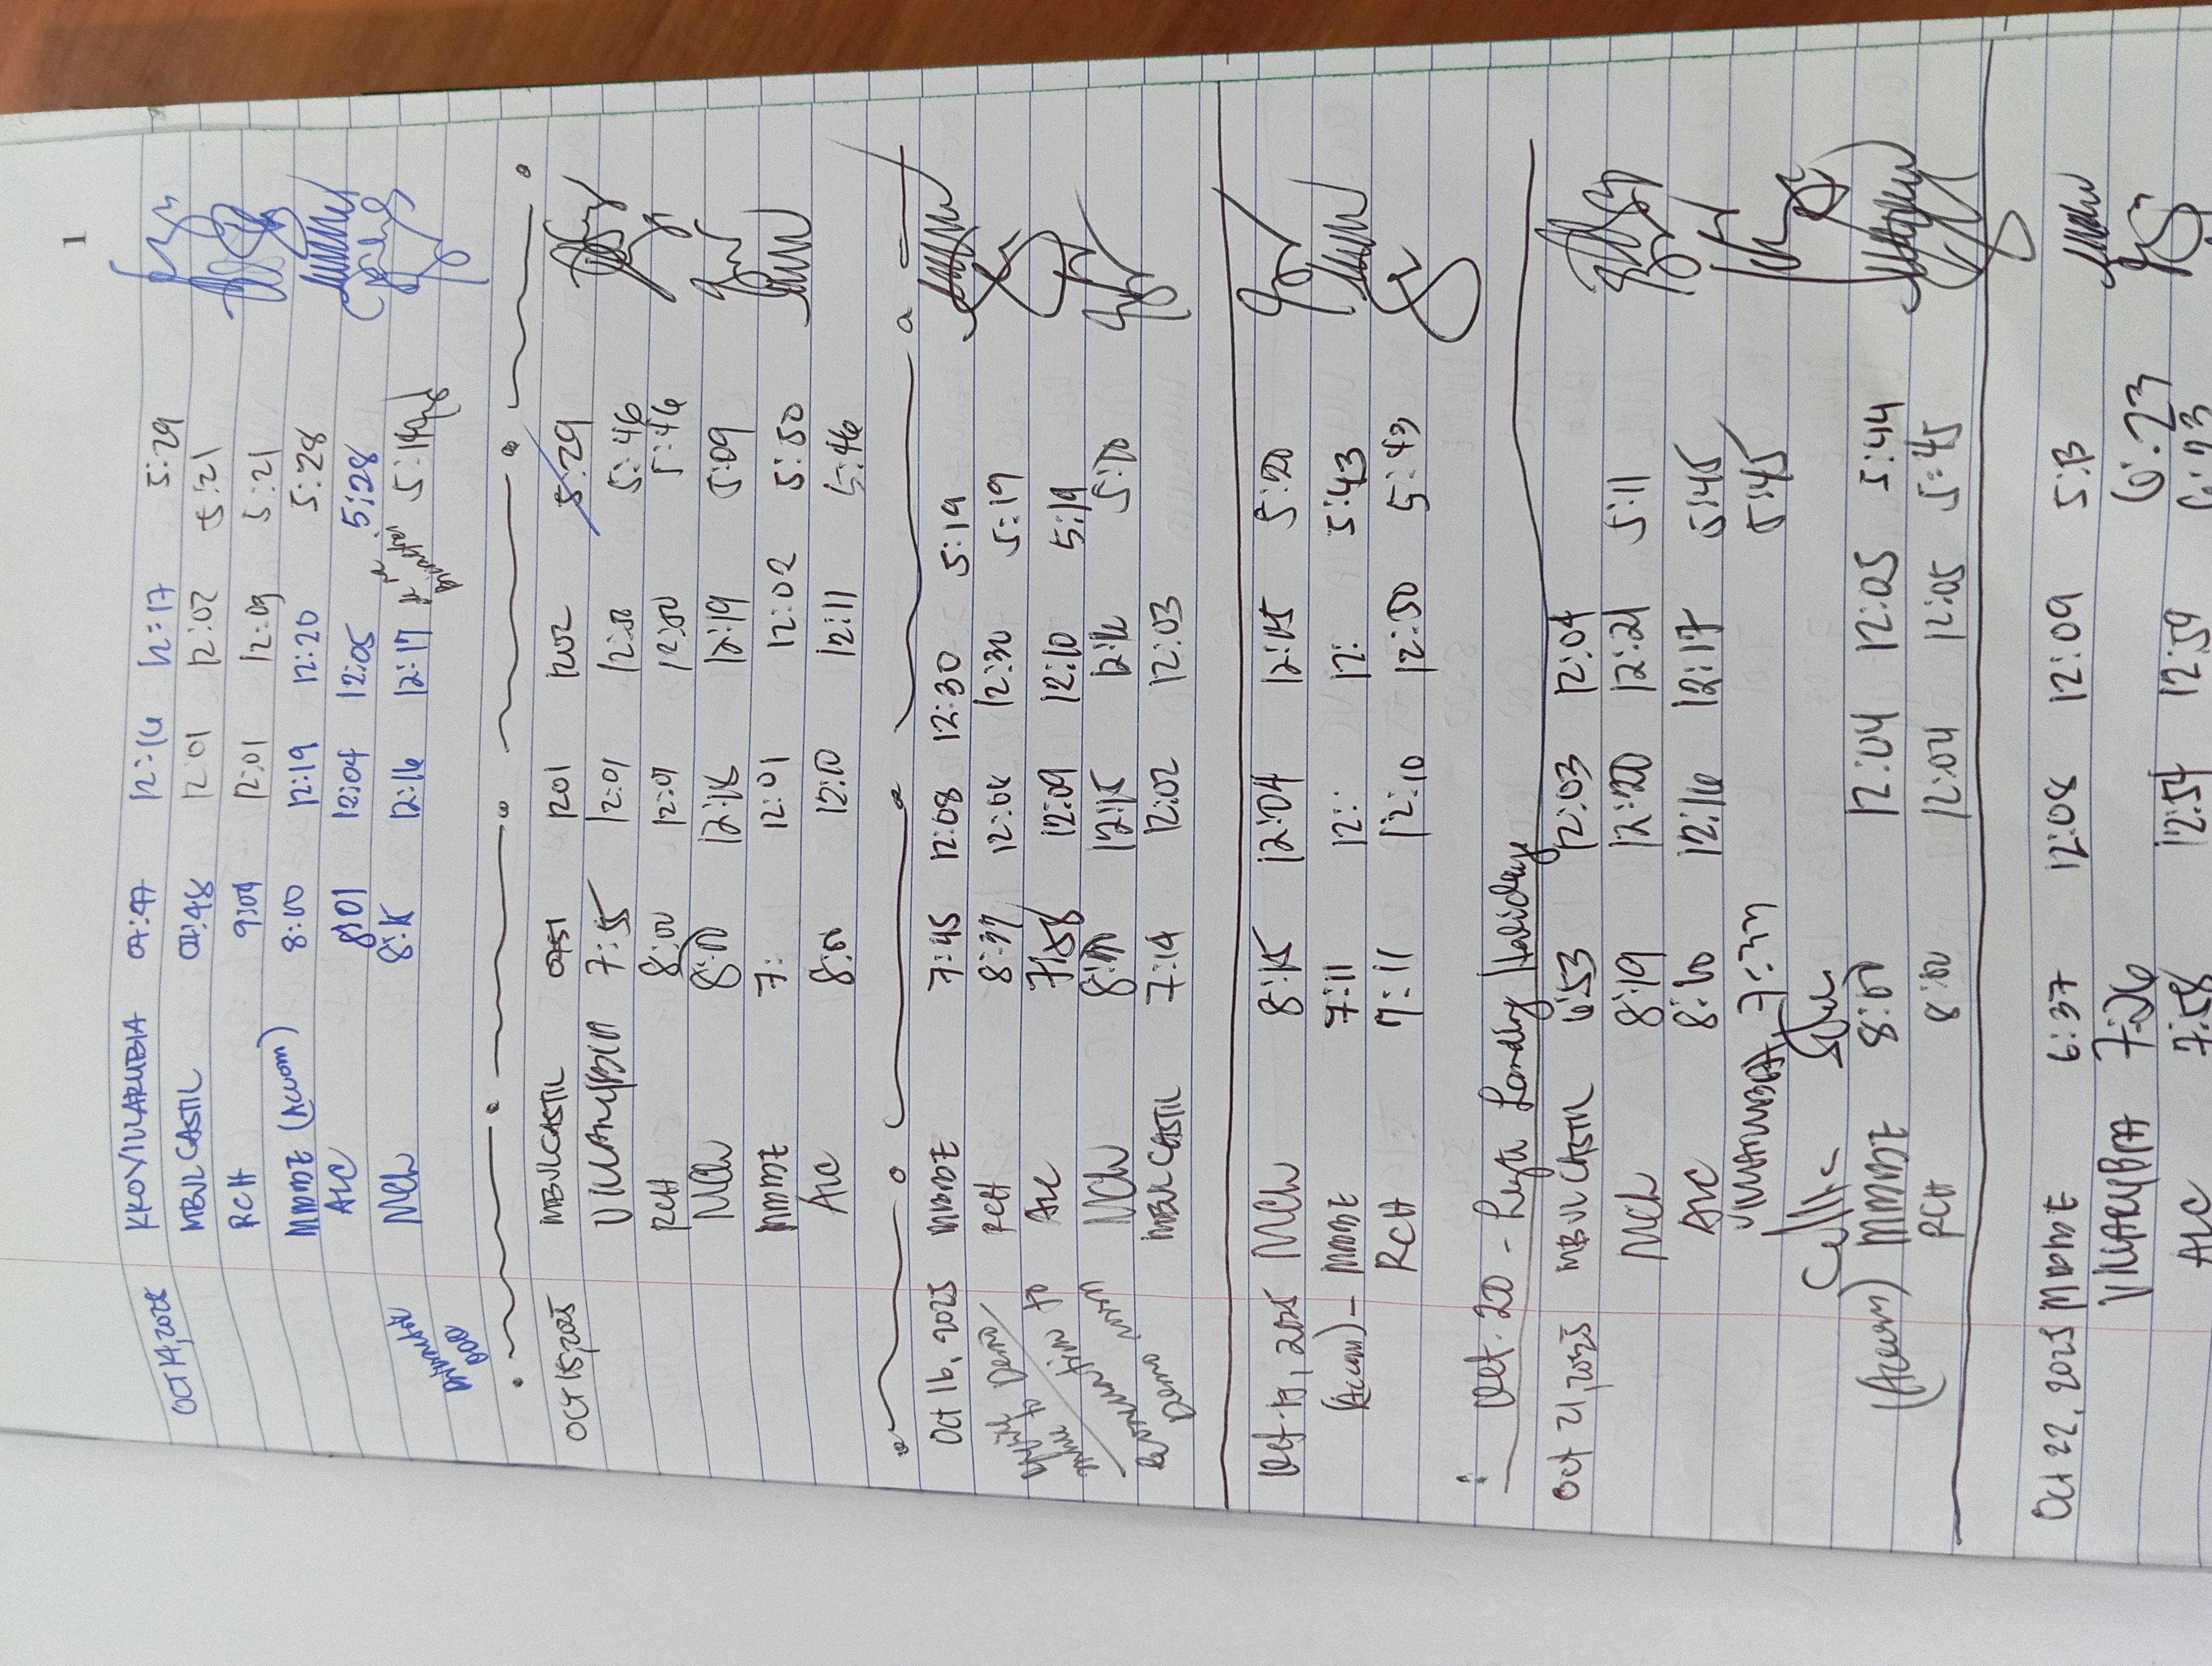 1
OCT 14, 2025 KKOVILLARUBIA 07:47 12:16 12:17 5:29
MBVLCASTIL 07:48 12:01 12:02 5:21
RCH 12:01 12:09 5:21
MMMDE (Accom) 8:00 12:19 12:20 5:28
ALC 8:01 12:04 12:05 5:28
MCh 8:15 12:16 12:17
OCT 15, 2025 MBVLCASTIL 0751 1201 1202 5:29
VILLARUBIA 7:55 12:01 12:00 5:46
RCH 8:00 12:01 12:00 5:46
MCh 8:00 12:19 5:09
MMMDE 7: 12:01 12:02 5:50
ALC 8:00 12:10 12:11 5:46
Oct 16, 2025 MMMDE 7:45 12:08 12:30 5:19
RCH 8:37 12:30 5:19
ALC 7:58 12:09 12:10 5:19
MCh 8:00 12:15 12:16 5:10
MBVLCASTIL 7:14 12:02 12:03
Demo
Oct 17, 2025 MCh 8:15 12:04 12:15 5:20
(Accom) - MMMDE 7:11 12: 12: 5:43
RCH 7:11 12:10 12:50 5:43
Oct. 20 - Leyte Landing Holiday
Oct 21, 2025 MBVLCASTIL 6:53 12:03 12:04
MCh 8:19 12:20 12:21 5:11
ALC 8:00 12:16 12:17 5:45
VILLARUBIA 7:37 5:45
(Accom) MMMDE 8:00 12:04 12:05 5:44
RCH 8:00 12:04 12:05 5:45
Oct 22, 2025 MMMDE 6:37 12:08 12:09 5:13
VILLARUBIA 7:26 6:23
ALC 7:58 12:54 12:59 6:23